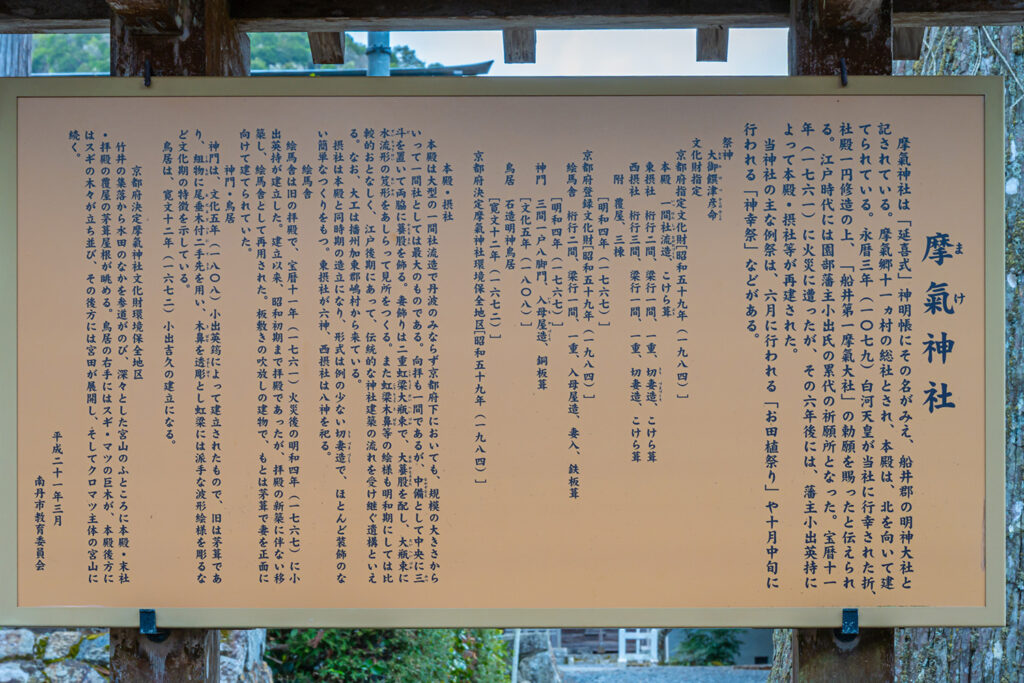 摩氣神社
まけ
摩氣神社は「延喜式」神明帳にその名がみえ、船井郡の明神大社と
記されている。摩氣郷十一ヵ村の総社とされ、本殿は、北を向いて建
てられている。永暦三年(一〇七九)白河天皇が当社に行幸された折、
社殿一円修造の上、「船井第一摩氣大社」の勅願を賜ったと伝えられ
る。江戸時代には園部藩主小出氏の累代の祈願所となった。宝暦十一
年(一七六一)に火災に遭ったが、その六年後には、藩主小出英持に
よって本殿・摂社等が再建された。
当神社の主な例祭は、六月に行われる「お田植祭り」や十月中旬に
行われる「神幸祭」などがある。
祭神
大御饌津彦命
文化財指定
京都府指定文化財[昭和五十九年(一九八四)]
本殿 一間社流造、こけら葺
東摂社 桁行二間、梁行一間、一重、切妻造、こけら葺
西摂社 桁行三間、梁行一間、一重、切妻造、こけら葺
附 覆屋、三棟
[明和四年(一七六七)]
京都府登録文化財[昭和五十九年(一九八四)]
絵馬舎 桁行二間、梁行一間、一重、入母屋造、妻入、鉄板葺
[明和四年(一七六七)]
神門 三間一戸八脚門、入母屋造、銅板葺
[文化五年(一八〇八)]
鳥居 石造明神鳥居
[寛文十二年(一六七二)]
京都府決定摩氣神社環境保全地区[昭和五十九年(一九八四)]
本殿・摂社
本殿は大型の一間社流造で丹波のみならず京都府下においても、規模の大きさから
いって一間社としては最大のものである。向拝も一間であるが、中備として中央に三
斗を置いて両脇に蟇股を飾る。妻飾りは二重虹梁大瓶束で、大蟇股を配し、大瓶束に
水流形の笈形をあしらって見所をつくる。また虹梁木鼻等の絵様も明和期にしては比
較的おとなしく、江戸後期にあって、伝統的な神社建築の流れを受け継ぐ遺構といえ
る。なお、大工は播州加東郡嶋村から来ている。
摂社は本殿と同時期の造立になり、形式は例の少ない切妻造で、ほとんど装飾のな
い簡単なつくりをもつ。東摂社が六神、西摂社は八神を祀る。
絵馬舎
絵馬舎は旧の拝殿で、宝暦十一年(一七六一)火災後の明和四年(一七六七)に小
出英持が建立した。建立以来、昭和初期まで拝殿であったが、拝殿の新築に伴ない移
築し、絵馬舎として再用された。板敷きの吹放しの建物で、もとは茅葺で妻を正面に
向けて建てられていた。
神門・鳥居
神門は、文化五年(一八〇八)小出英筠によって建立されたもので、旧は茅葺であ
り、組物に尾垂木付二手先を用い、木鼻を透彫とし虹梁には派手な波形絵様を彫るな
ど文化期の特徴を示している。
鳥居は、寛文十二年(一六七二)小出吉久の建立になる。
京都府決定摩氣神社文化財環境保全地区
竹井の集落から水田のなかを参道がのび、深々とした宮山のふところに本殿・末社
・拝殿の覆屋の茅葺屋根が眺める。鳥居の右手にはスギ・マツの巨木が、本殿後方に
はスギの木々が立ち並び、その後方には宮田が展開し、そしてクロマツ主体の宮山に
続く。
平成二十一年三月
南丹市教育委員会